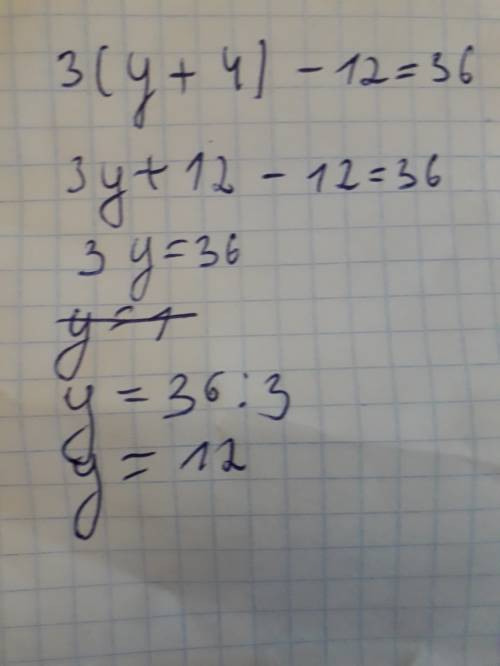 3(y+4)-12=36
3y+12-12=36
3y=36
y=1
y=36:3
y=12